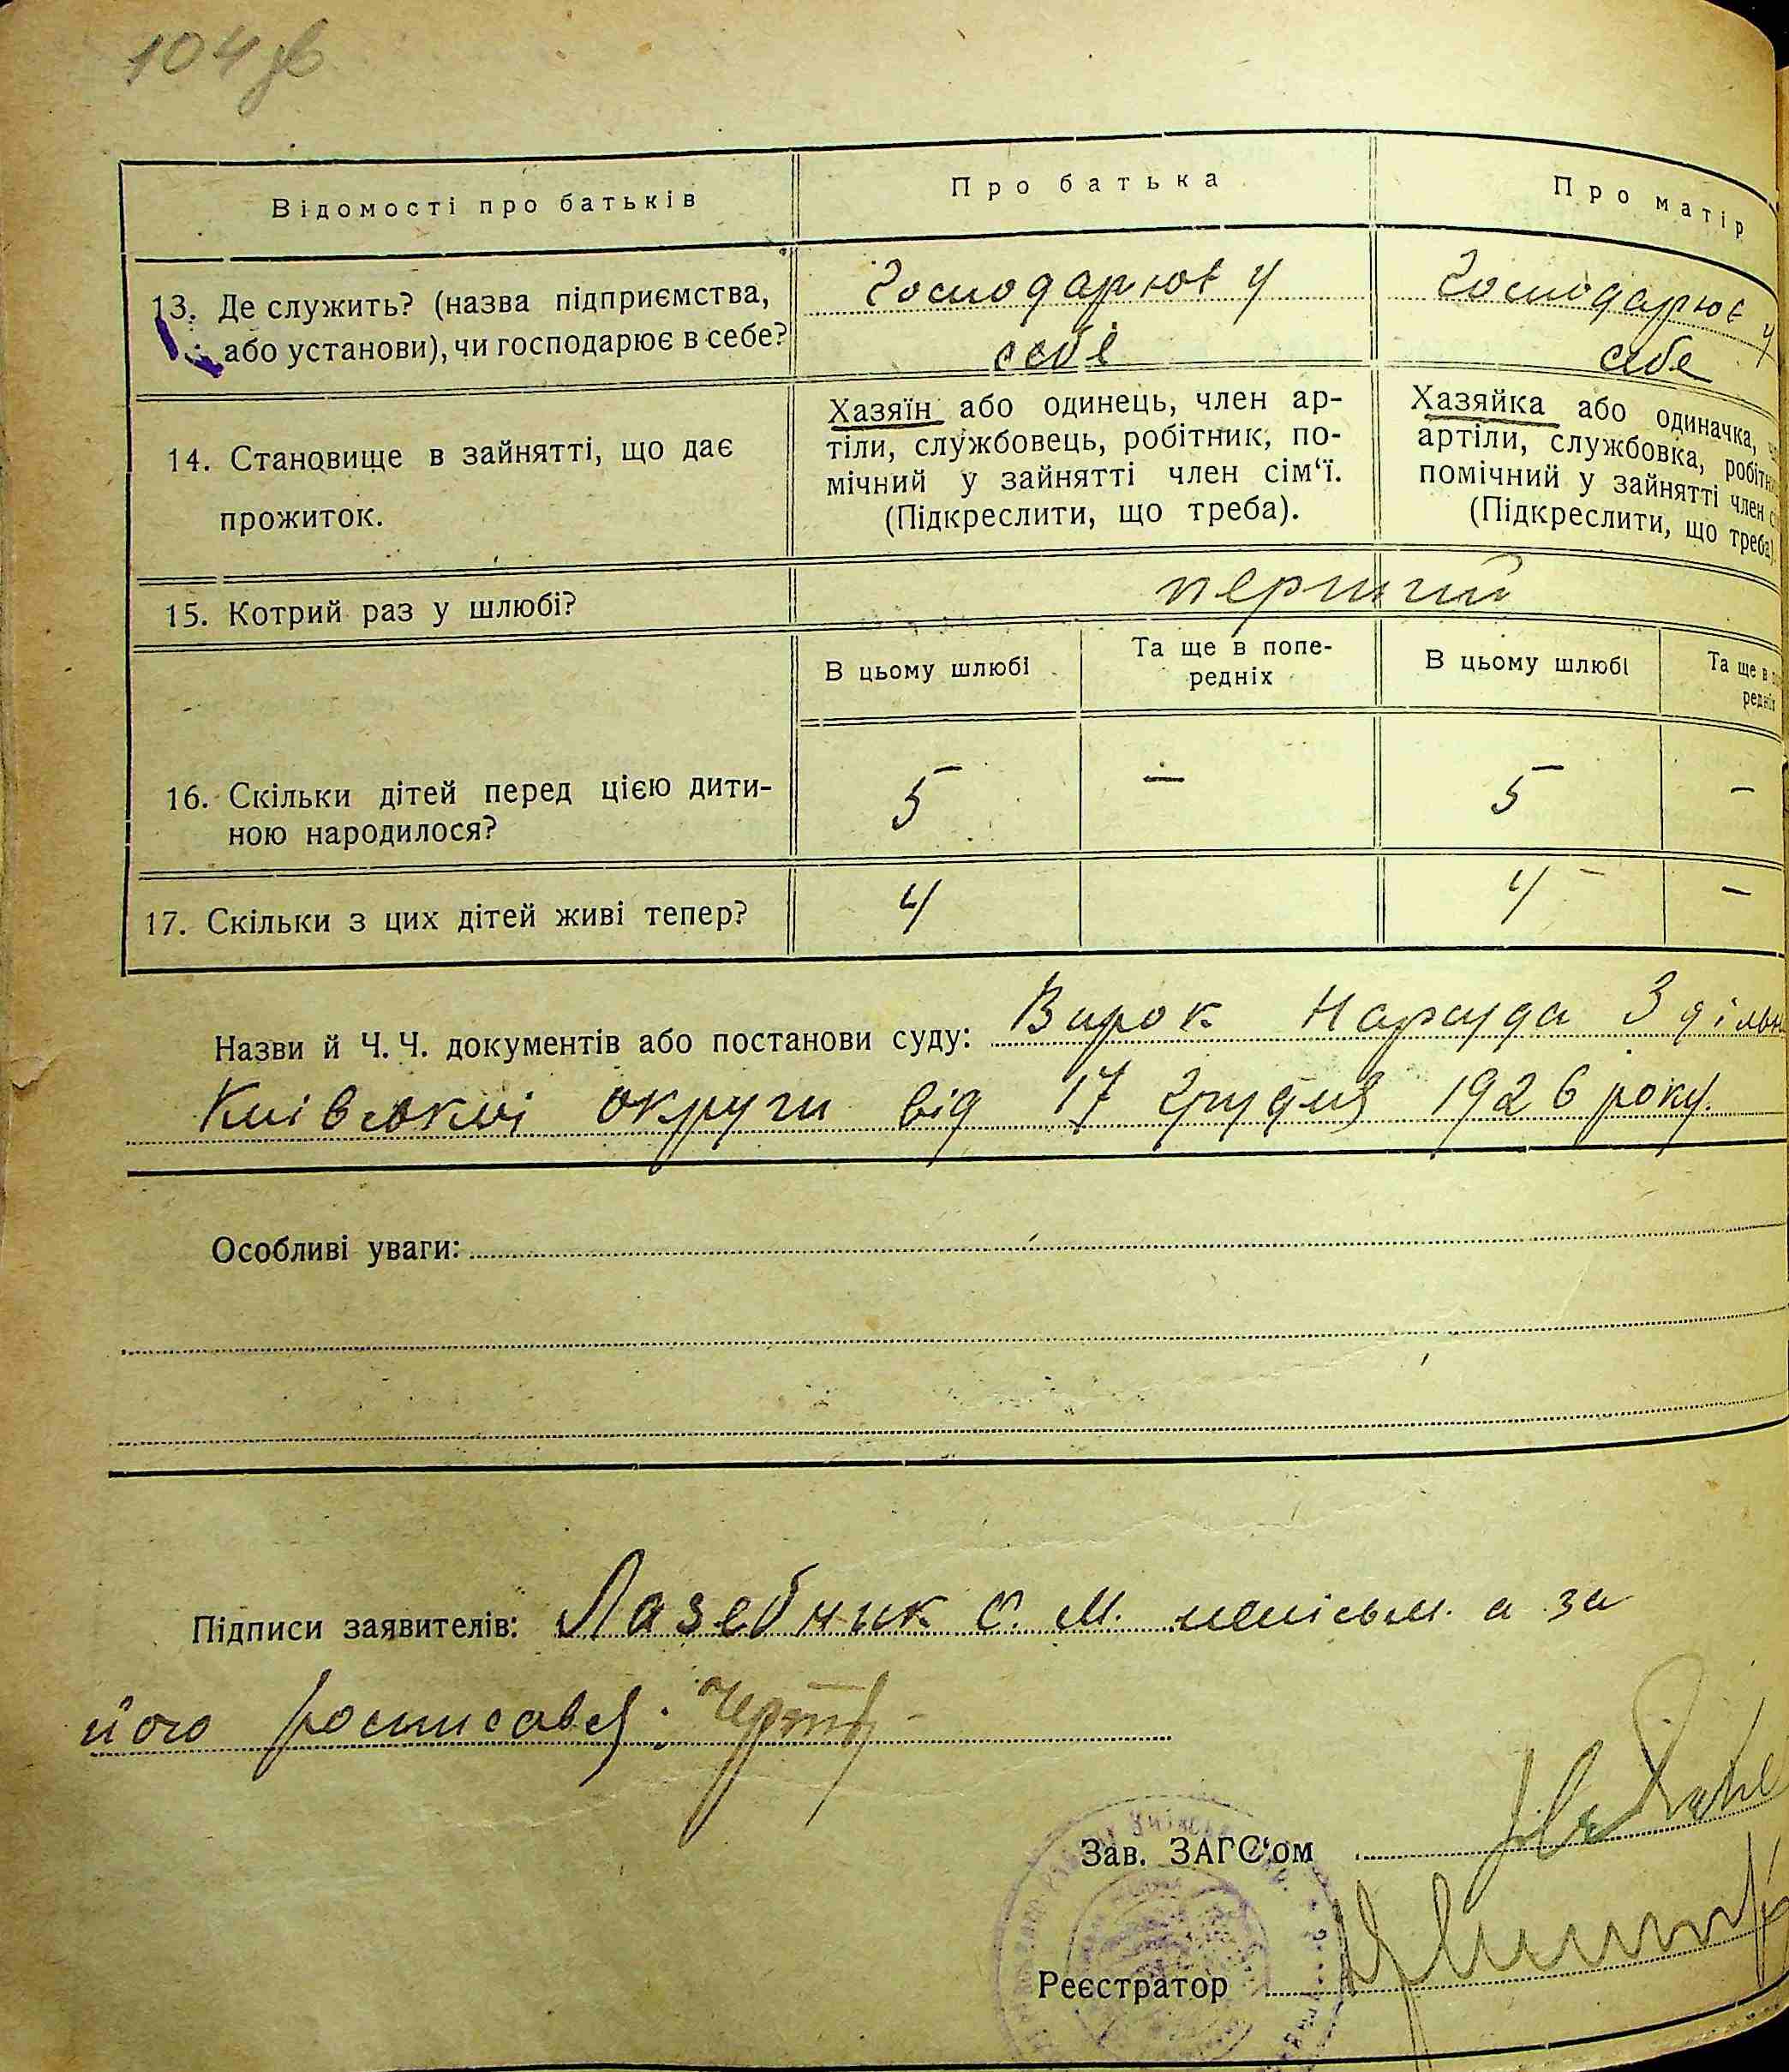 104 зв
Відомості про батьків
Про батька
Про матір
13. Де служить? (назва підприємства,
або установи), чи господарює в себе?
Господарює у
себе
Господарює у
себе
14. Становище в зайнятті, що дає
прожиток.
Хазяїн або одинець, член ар-
тіли, службовець, робітник, по-
мічний у зайнятті член сім‘ї.
(Підкреслити, що треба).
Хазяйка або одиначка,
артіли, службовка,
помічний у зайнятті член
(Підкреслити, що треба)
15. Котрий раз у шлюбі?
перший
В цьому шлюбі
Та ще в попе-
редніх
В цьому шлюбі
Та ще в
редніх
16. Скільки дітей перед цією дити-
ною народилося?
5
—
5
—
17. Скільки з цих дітей живі тепер?
4
4
—
Назви й Ч. Ч. документів або постанови суду: Вирок Нарсуда 3 дільн
Київської округи від 17 грудня 1926 року.
Особливі уваги:
Підписи заявителів: Лазебник С. М. непісьм. а за
його росписався:
Зав. ЗАГС‘ом
Реєстратор